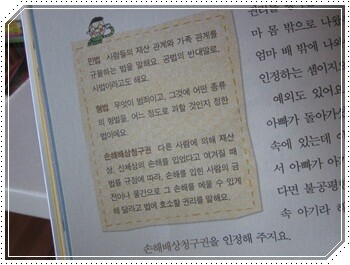 민법 사람들의 재산 관계와 가족 관계를
규율하는 법을 말해요. 공법의 반대말로,
사법이라고도 해요.
형법 무엇이 범죄이고, 그것에 어떤 종류
의 형벌을, 어느 정도로 과할 것인지 정한
법이에요.
손해배상청구권 다른 사람에 의해 재산
상, 신체상의 손해를 입었다고 여겨질 때
법률 규정에 따라, 손해를 입힌 사람이 금
전이나 물건으로 그 손해를 메울 수 있게
해 달라고 법에 호소할 권리를 말해요.
마 몸 밖으로 나왔
엄마 배 밖에 나와
인정하는 셈이지
예외도 있어요
아빠가 돌아가
속에 있는데 이
서 아빠가 아
다면 불공평
속 아기라
손해배상청구권을 인정해 주지요.